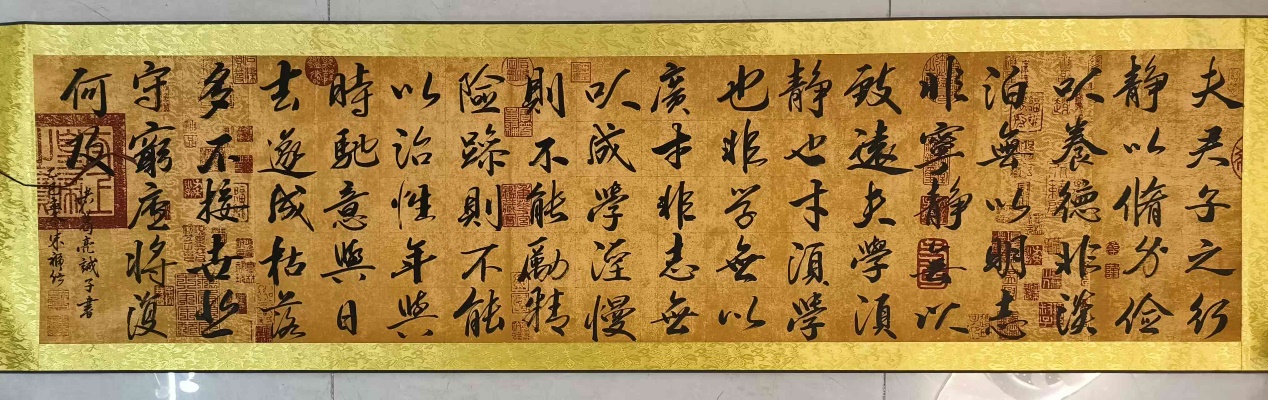 夫君子之行
静以脩身俭
以養德非淡
泊無以明志
非寧静無以
致遠夫學須
静也才須學
也非学無以
廣才非志無
以成學淫慢
則不能勵精
險躁則不能
以治性年與
時馳意與日
去遂成枯落
多不接世悲
守窮廬將復
何及
諸葛亮誡子書